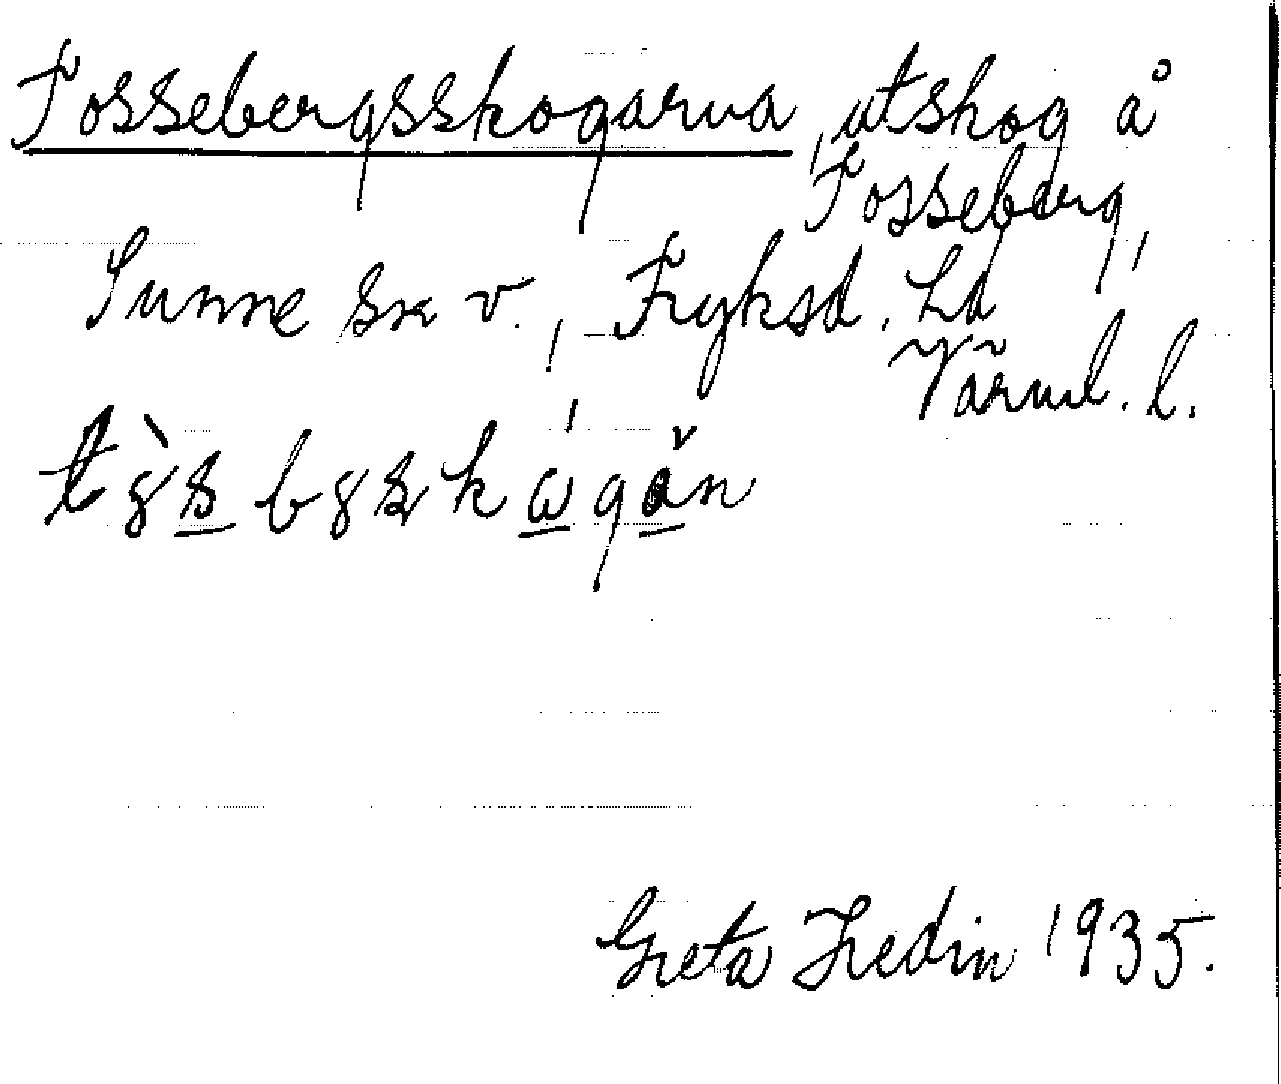 Fossebergsskogarna, utskog å
Fosseberg,
Sunne sn v., Fryksd. hd
Värml. l.
Greta Hedin 1935.